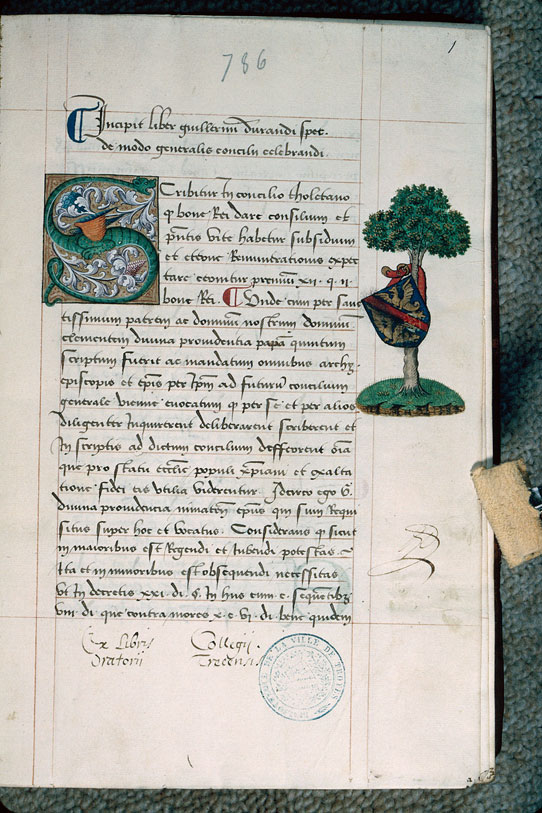 786
1
Incipit liber guillermi durandi spec.
de modo generalis concilii celebrandi.
Scribitur In concilio tholetano
q bone Rei dare consilium et
pñtis vite habetur subsidium
et etterne Remunerationis expec
tare cernitur premium xii. q. ii.
bone Rei. Unde cum per sanc
tissimum patrem ac dominum nostrum dominum
clementem divina providentia papã quintum
scriptum fuerit ac mandatum omnibus archi
episcopis et epis per Ipm ad futurũ concilium
generale vienne evocatum q per se et per alios
diligenter Inquirerent deliberarent scriberent et
In scriptis ad dictum concilium defferrent oĩa
que pro statu ecclie populi xpiani et exalta
tione fidei eis utilia viderentur. Idcirco ego G.
divina providencia mimaten epus qui sum Requi
situs super hoc et vocatus. Considerans q sicut
in maioribus est Regendi et Iubendi potestas
Ita et in minoribus est obsequendi necessitas
ut In decretis xxi. di. §. In hiis cum e. sequentibz
viii. di. que contra mores x. e. vi. di. bene quidem
Ex Libris Collegii
Oratorii Trecensis.
BIBLIOTHEQUE DE LA VILLE DE TROYES